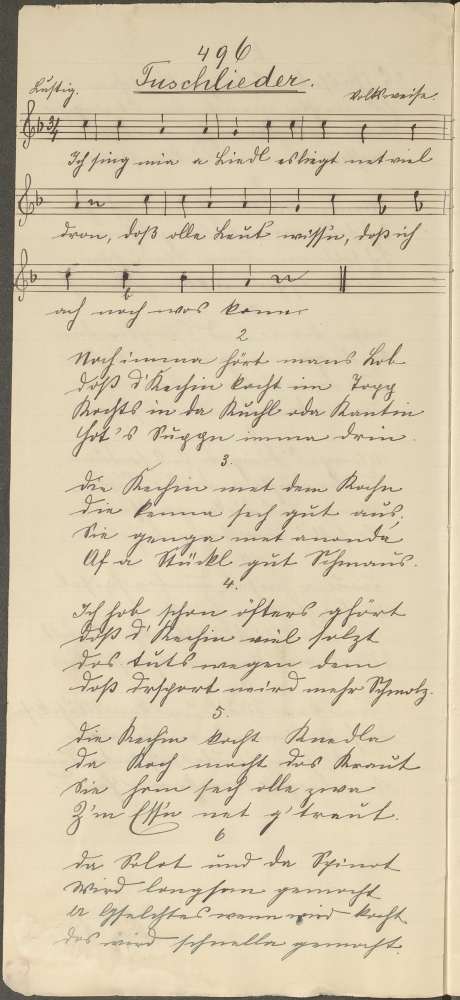 496
Tuschlieder.
Lustig.
Volksweise.
3/4
Ich sing mia a Liedl es liegt net viel
dron, doß olle Leut wissn, doß ich
ach noch wos konn
2
Noch imma hört mans Lob
doß d'Kechin kocht im Topp
Kochts in da Kuchl oda Kantin
Hot's Suppn imma drin.
3.
Die Kechin met dem Kochn
die kenna sech gut aus,
Sie genga met ananda
Af a Stückl gut Schmaus.
4.
Ich hob schon öfters ghört
doß d'Kechin viel solzt
dos tuts wegen dem
doß drsport wird mehr Schmolz.
5.
Die Kechin kocht Knedla
da Koch macht dos Kraut
Sie hom sech olle zwa
Z'm Essn net g'traut.
6
Da Solot und da Spinot
Wird longsam gemocht
A Gselchtes wenn wird kocht
dos wird schnella gemocht.